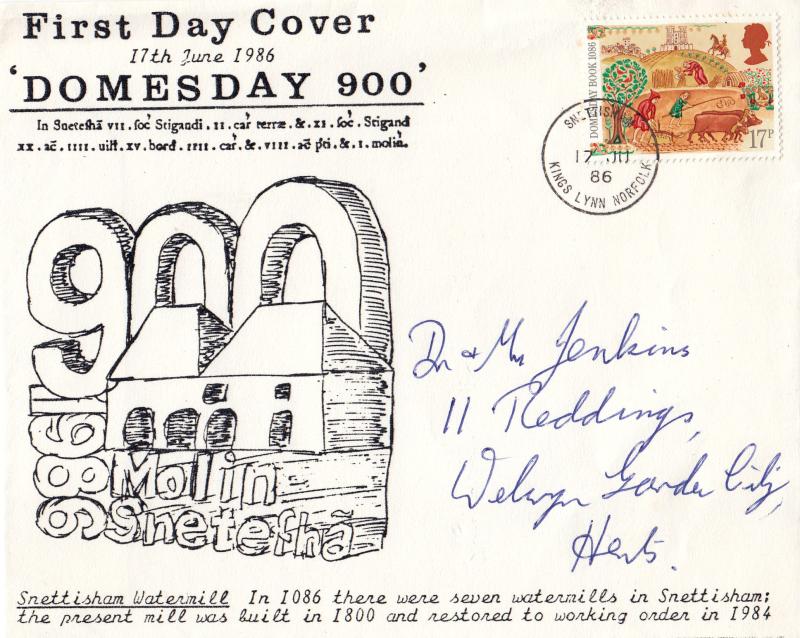 First Day Cover
17th June 1986
'DOMESDAY 900'
In Snetefhā VII. foc̓ Stigandi. II. car̓ terræ. &. XI. foc̓. Stigand
XX. ac̄. IIII. uilt. XV. bord. IIII. car̓. &. VIII. ac̄ p̓ti. &. I. molin̓.
DOMESDAY BOOK 1086
17P
SNETTISHAM
17 JU
86
KINGS LYNN NORFOLK
900
1986
Molin
Snetefhā
Dr & Mrs Jenkins
11 Reddings,
Welwyn Garden City,
Herts.
Snettisham Watermill In I086 there were seven watermills in Snettisham;
the present mill was built in I800 and restored to working order in 1984